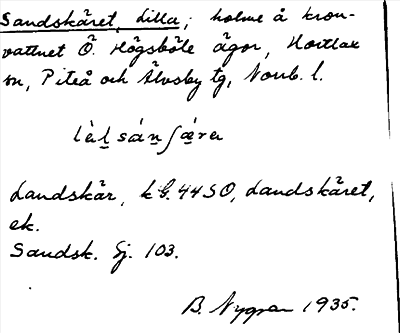 Sandskäret, Lilla; holme å kron-
vattnet Ö. Högsböle ägor, Hortlax
sn, Piteå och Älvsby tg, Norrb. l.
lı̀l sán ʃæ̀ra
Landskär, k G. 44 SO, Landskäret,
ek.
Sandsk. Gj. 103.
B. Nygren 1935.